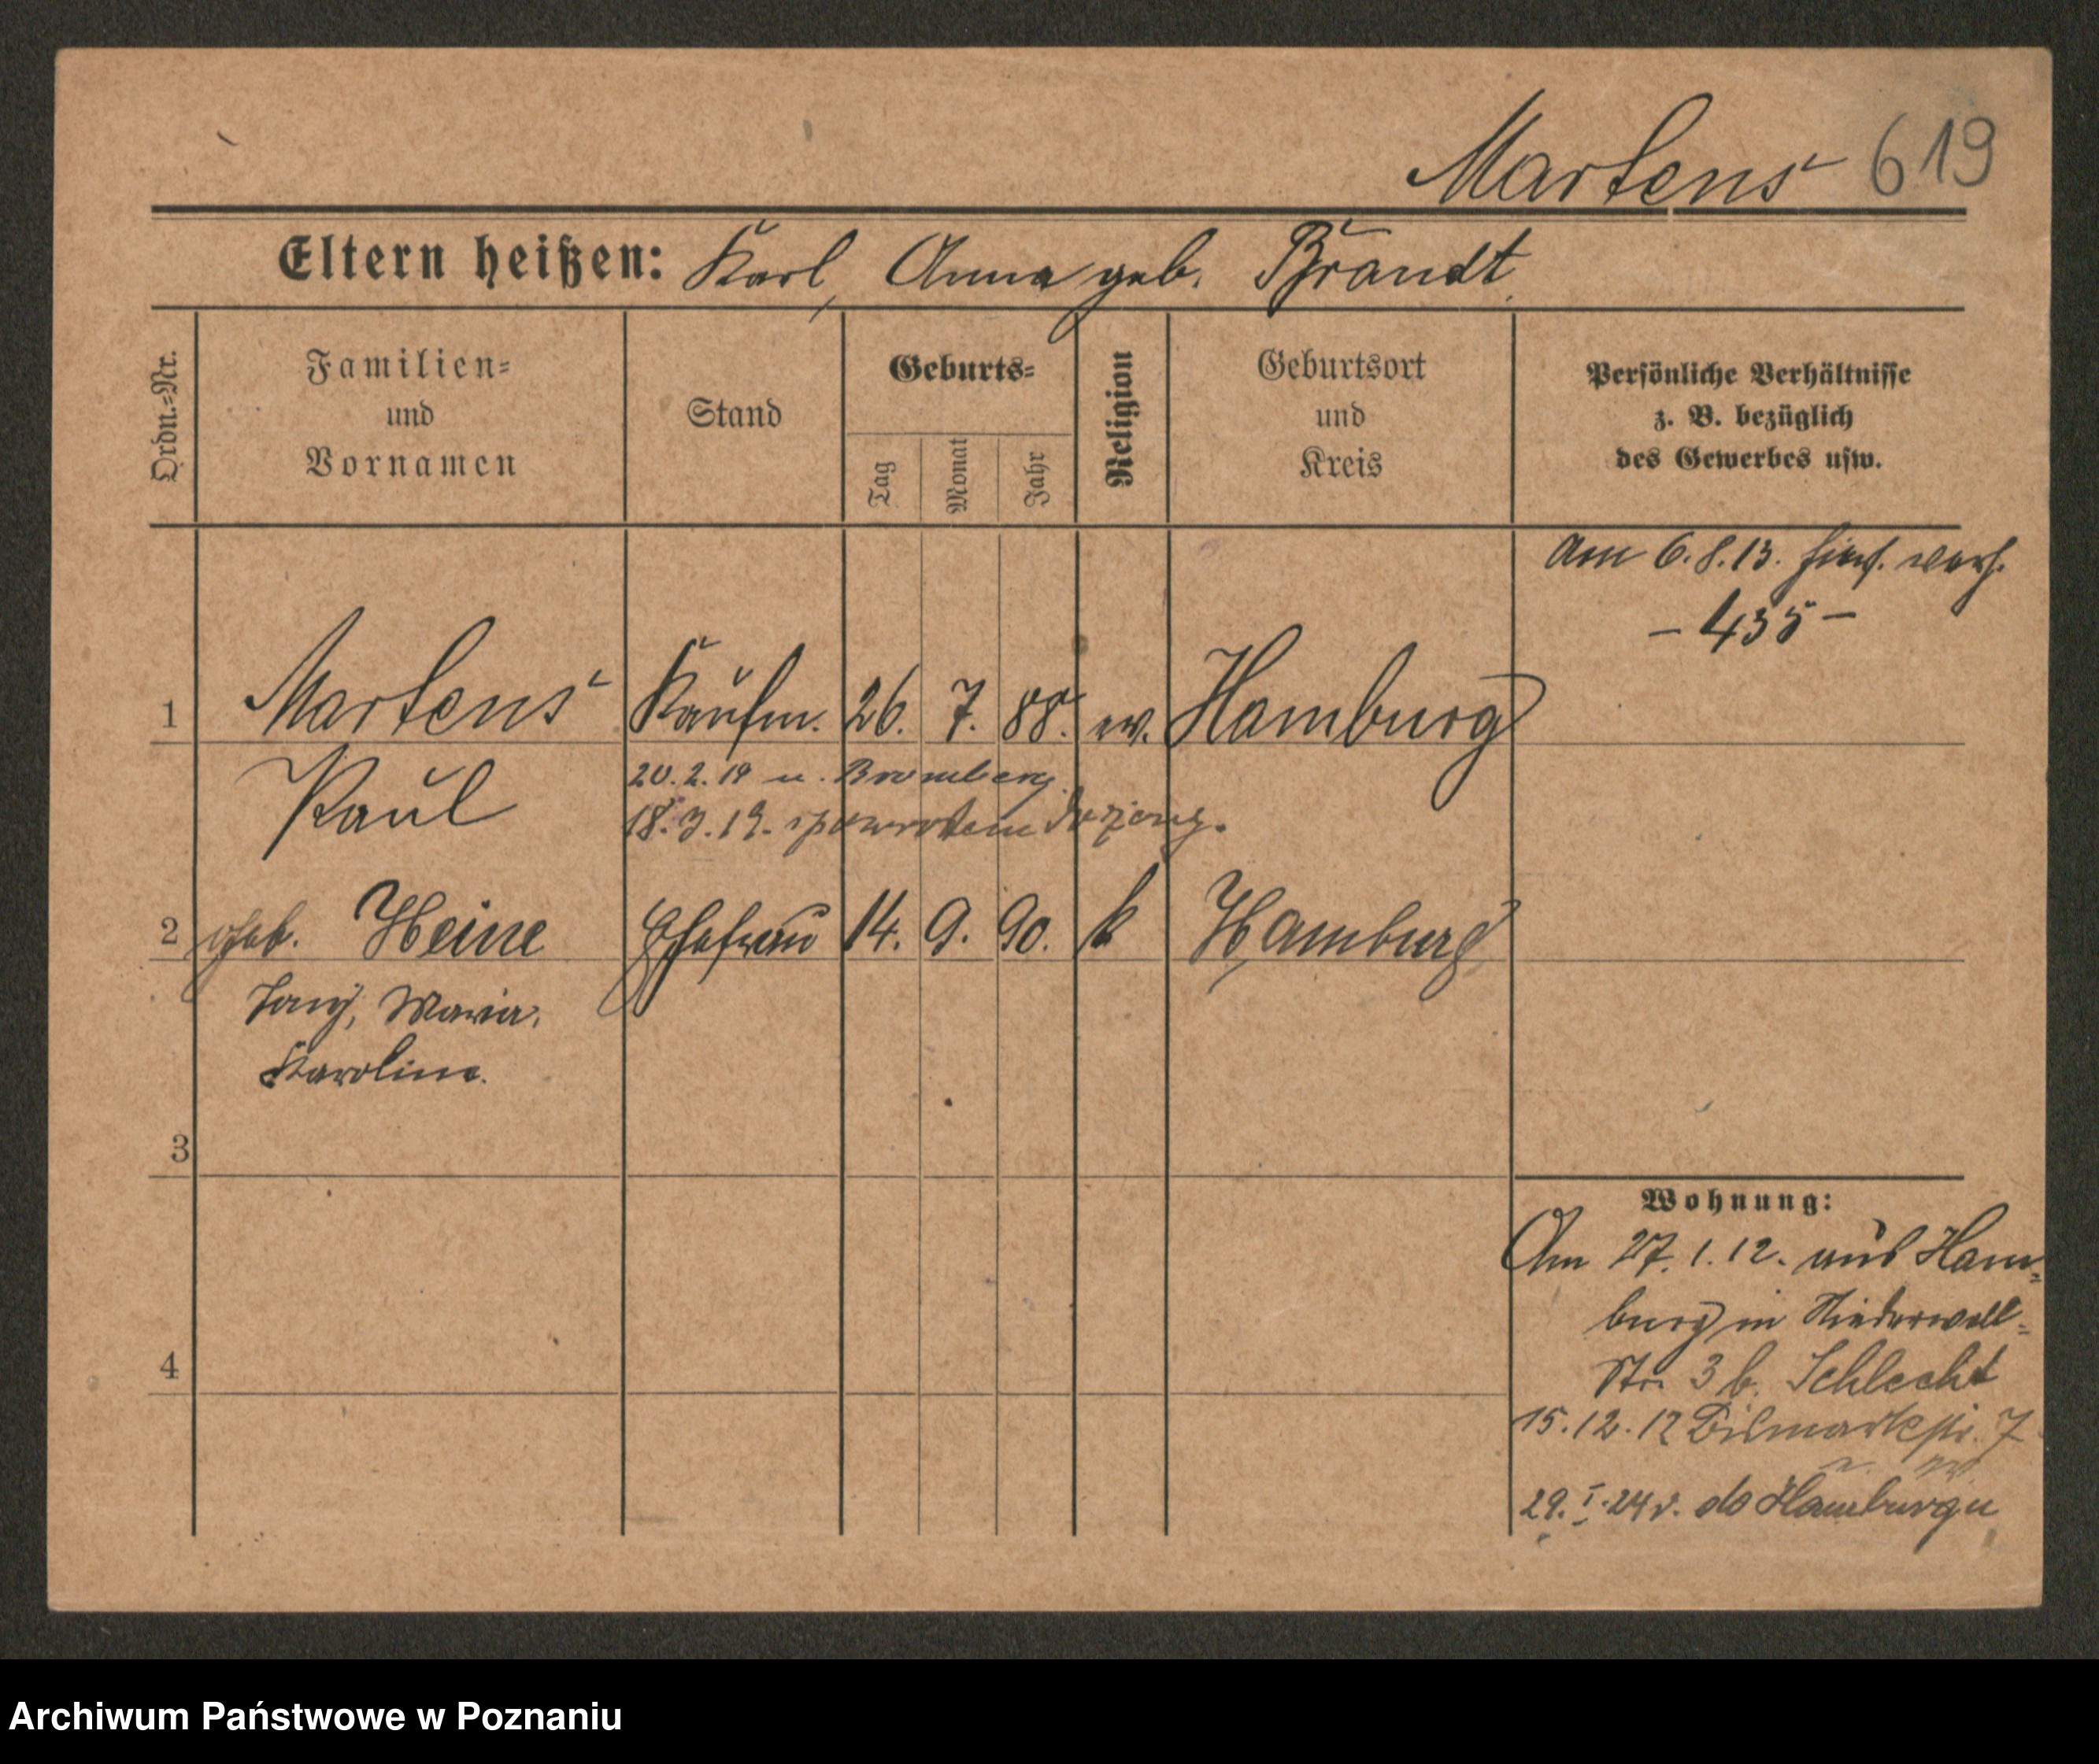 Martens 619
Eltern heißen: Karl, Anna geb. Brandt
Ordn.-Nr.
Familien-
und
Vornamen
Stand
Geburts-
Tag
Monat
Jahr
Religion
Geburtsort
und
Kreis
Persönliche Verhältnisse
z. B. bezüglich
des Gewerbes usw.
Am 6.8.13. verh.
- 435 -
1 Martens Kaufm. 26. 7. 88. ev. Hamburg
Paul
20.2.19 n. Bromberg
18.3.19. spowrotem
2 geb. Heine Ehefrau 14. 9. 90. k Hamburg
Maria,
Karoline.
3
4
Wohnung:
Am 27.1.12. aus Ham-
burg in Niederwall-
Str. 3 b. Schlecht
15.12.12 Bismarckstr. 7
29.I.24 r. do Hamburgu
Archiwum Państwowe w Poznaniu